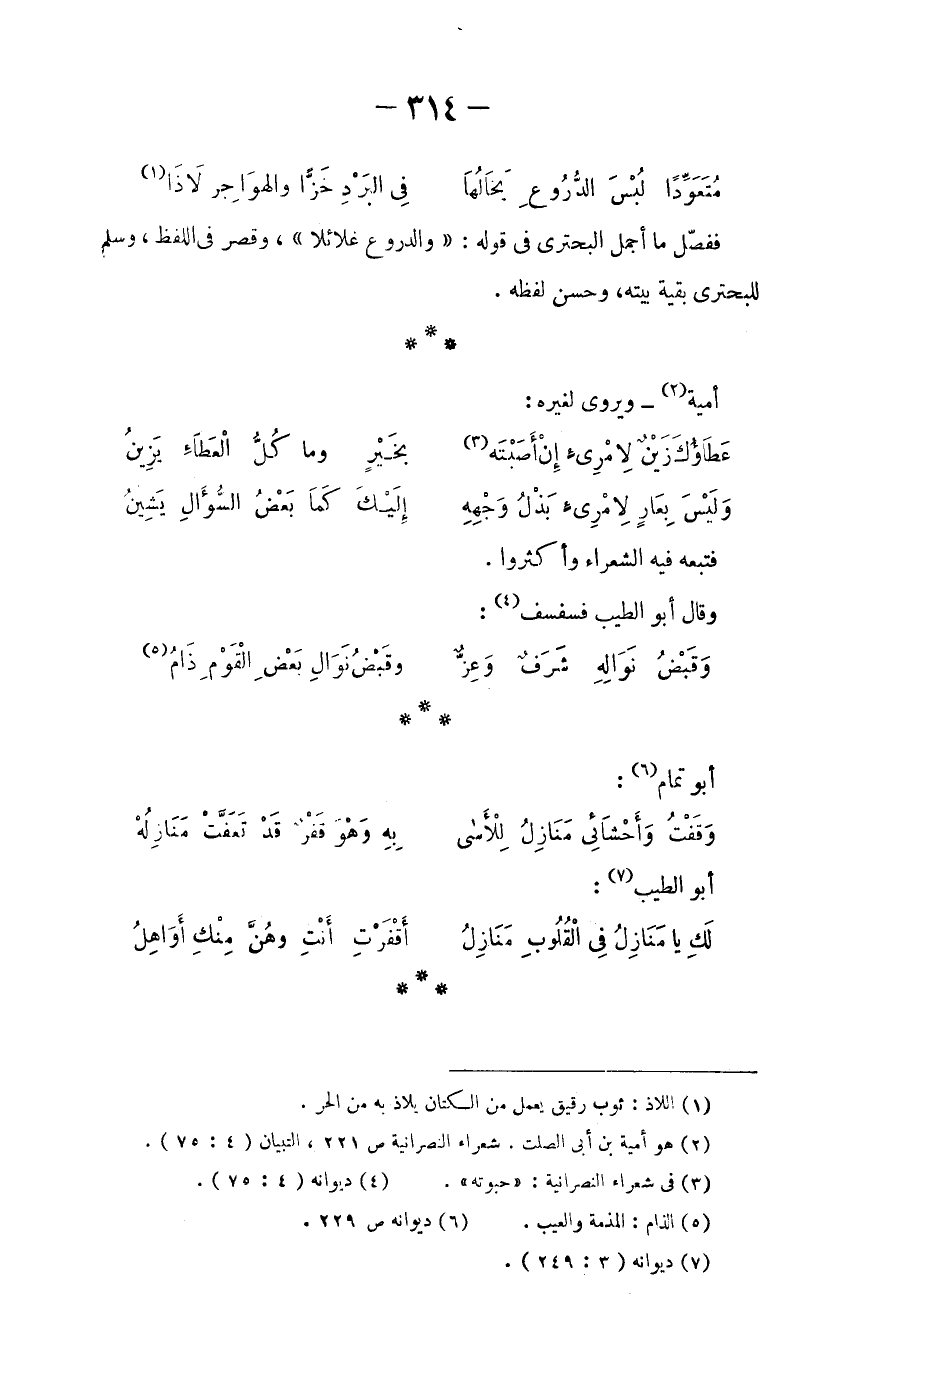 — ٣١٤ —
مُتَعَوِّدًا لُبْسَ الدُّرُوعِ يَخَالُهَا فِى البَرْدِ خَزًّا والهوَاجِر لَاذَا(١)
ففصّل ما أجمل البحترى فى قوله : « والدروع غلائلا » ، وقصر فى اللفظ ، وسلم
للبحترى بقية بيته، وحسن لفظه .
***
أمية(٢) ــ ويروى لغيره :
عَطَاؤُكَ زَيْنٌ لِامْرِىءٍ إِنْ أَصَبْتَه(٣) بخَيْرٍ وما كُلُّ الْعَطَاءِ يَزِينُ
وَلَيْسَ بِعَارٍ لِامْرِىءٍ بَذْلُ وَجْهِهِ إِلَيْكَ كَمَا بَعْضُ السُّؤَالِ يَشِينُ
فتبعه فيه الشعراء وأكثروا .
وقال أبو الطيب فسفسف(٤) :
وَقَبْضُ نَوَالِهِ شَرَفٌ وَعِزٌّ وقَبْضُ نَوَالِ بَعْضِ الْقَوْمِ ذَامُ(٥)
***
أبو تمام(٦) :
وَقَفْتُ وَأَحْشَائِى مَنَازِلُ لِلْأَسٰى بِهِ وَهْوَ قَفْرٌ قَدْ تَعَفَّتْ مَنَازِلُهْ
أبو الطيب(٧) :
لَكِ يا مَنَازِلُ فِى الْقُلُوبِ مَنَازِلُ أَقْفَرْتِ أَنْتِ وهُنَّ مِنْكِ أَوَاهِلُ
***
(١) اللاذ : ثوب رقيق يعمل من الكتان يلاذ به من الحر .
(٢) هو أمية بن أبى الصلت . شعراء النصرانية ص ٢٢١ ، التبيان ( ٤ : ٧٥ ) .
(٣) فى شعراء النصرانية : «حبوته» . (٤) ديوانه ( ٤ : ٧٥ ) .
(٥) الذام : المذمة والعيب . (٦) ديوانه ص ٢٢٩ .
(٧) ديوانه ( ٣ : ٢٤٩ ) .